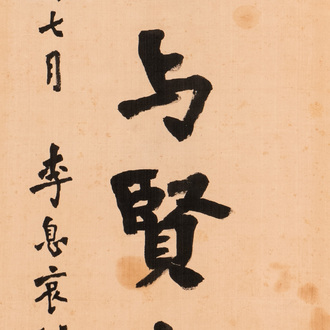 与賢
七月 李息哀